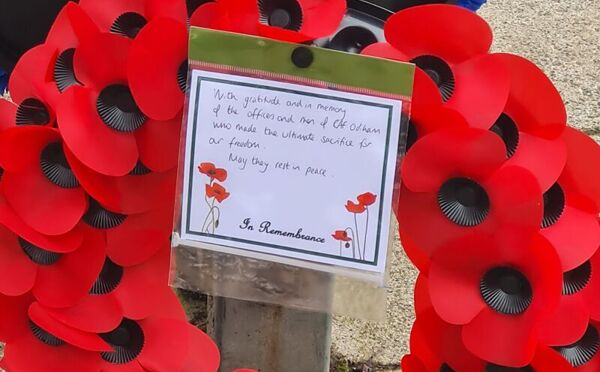 With gratitude and in memory
of the officers and men of RAF Oldham
who made the ultimate sacrifice for
our freedom.
May they rest in peace.
In Remembrance